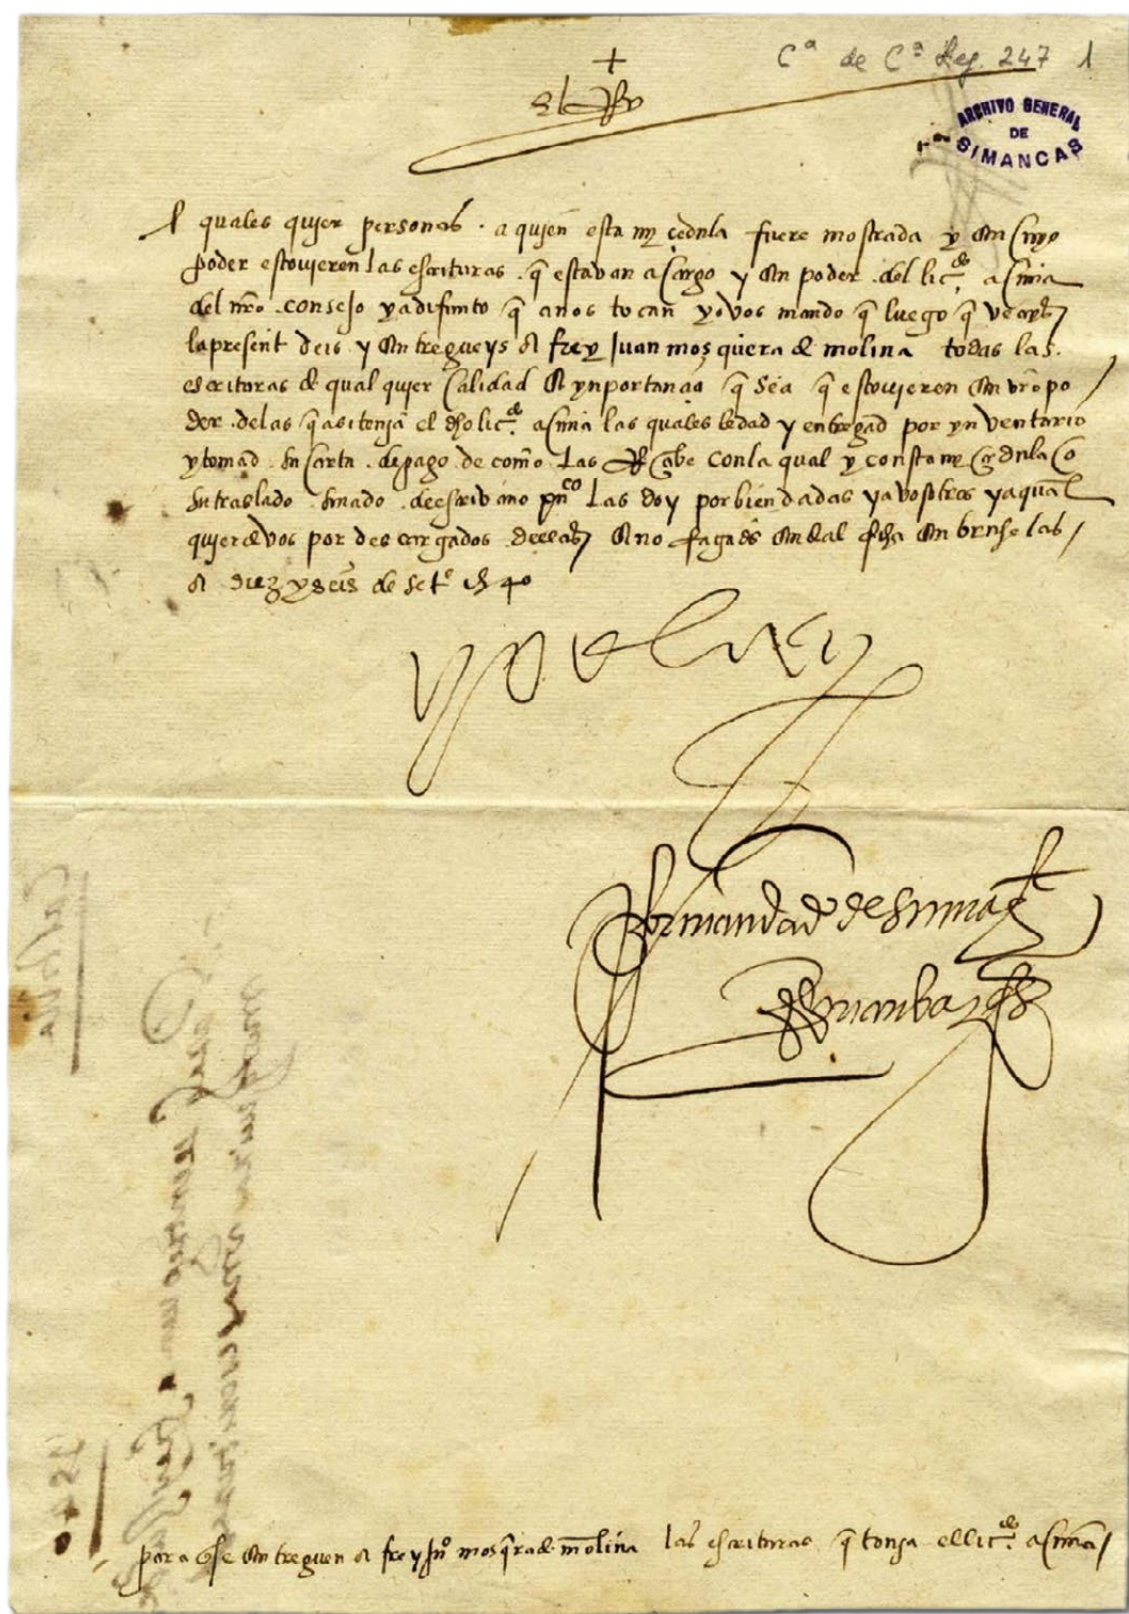 Cª de Cª Leg. 247 1
+
el Rey
ARCHIVO GENERAL
DE
SIMANCAS
A quales quier personas . a quien esta my çedula fuere mostrada y en cuyo
poder estovieren las escrituras . q̃ estavan a cargo y en poder . del licdo. acuña
del nr̃o consejo ya difunto q̃ a nos tocan yo vos mando q̃ luego q̃ veays
la present deis y entregueys a frey Juan mosquera de molina todas las .
escrituras de qual quier calidad e ynportançia q̃ sea q̃ estovieren en vr̃o po
der . de las q̃ asi tenja el dho licdo. acuña las quales le dad y entregad por ynventario
y tomad su carta . de pago . de como las Reçibe con la qual y con esta my çedula o
su traslado sinado de escrivano puco las doy por bien dadas y a vosotros y a qual
quier de vos por descargados dellas e no fagades ende al fcha en bruselas /
a diez y seis de sete. 40
yo el rey
Por mandado de su mat
para q̃ se entreguen a frey Juo mosqra de molina las escrituras q̃ tenja el licdo. acuña /